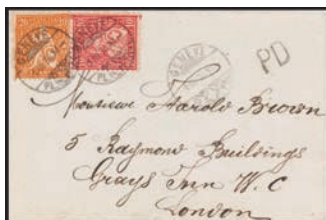 GENÈVE
GENÈVE
PD
Monsieur Harold Brown
5 Raymond Buildings
Grays Inn W.C
London